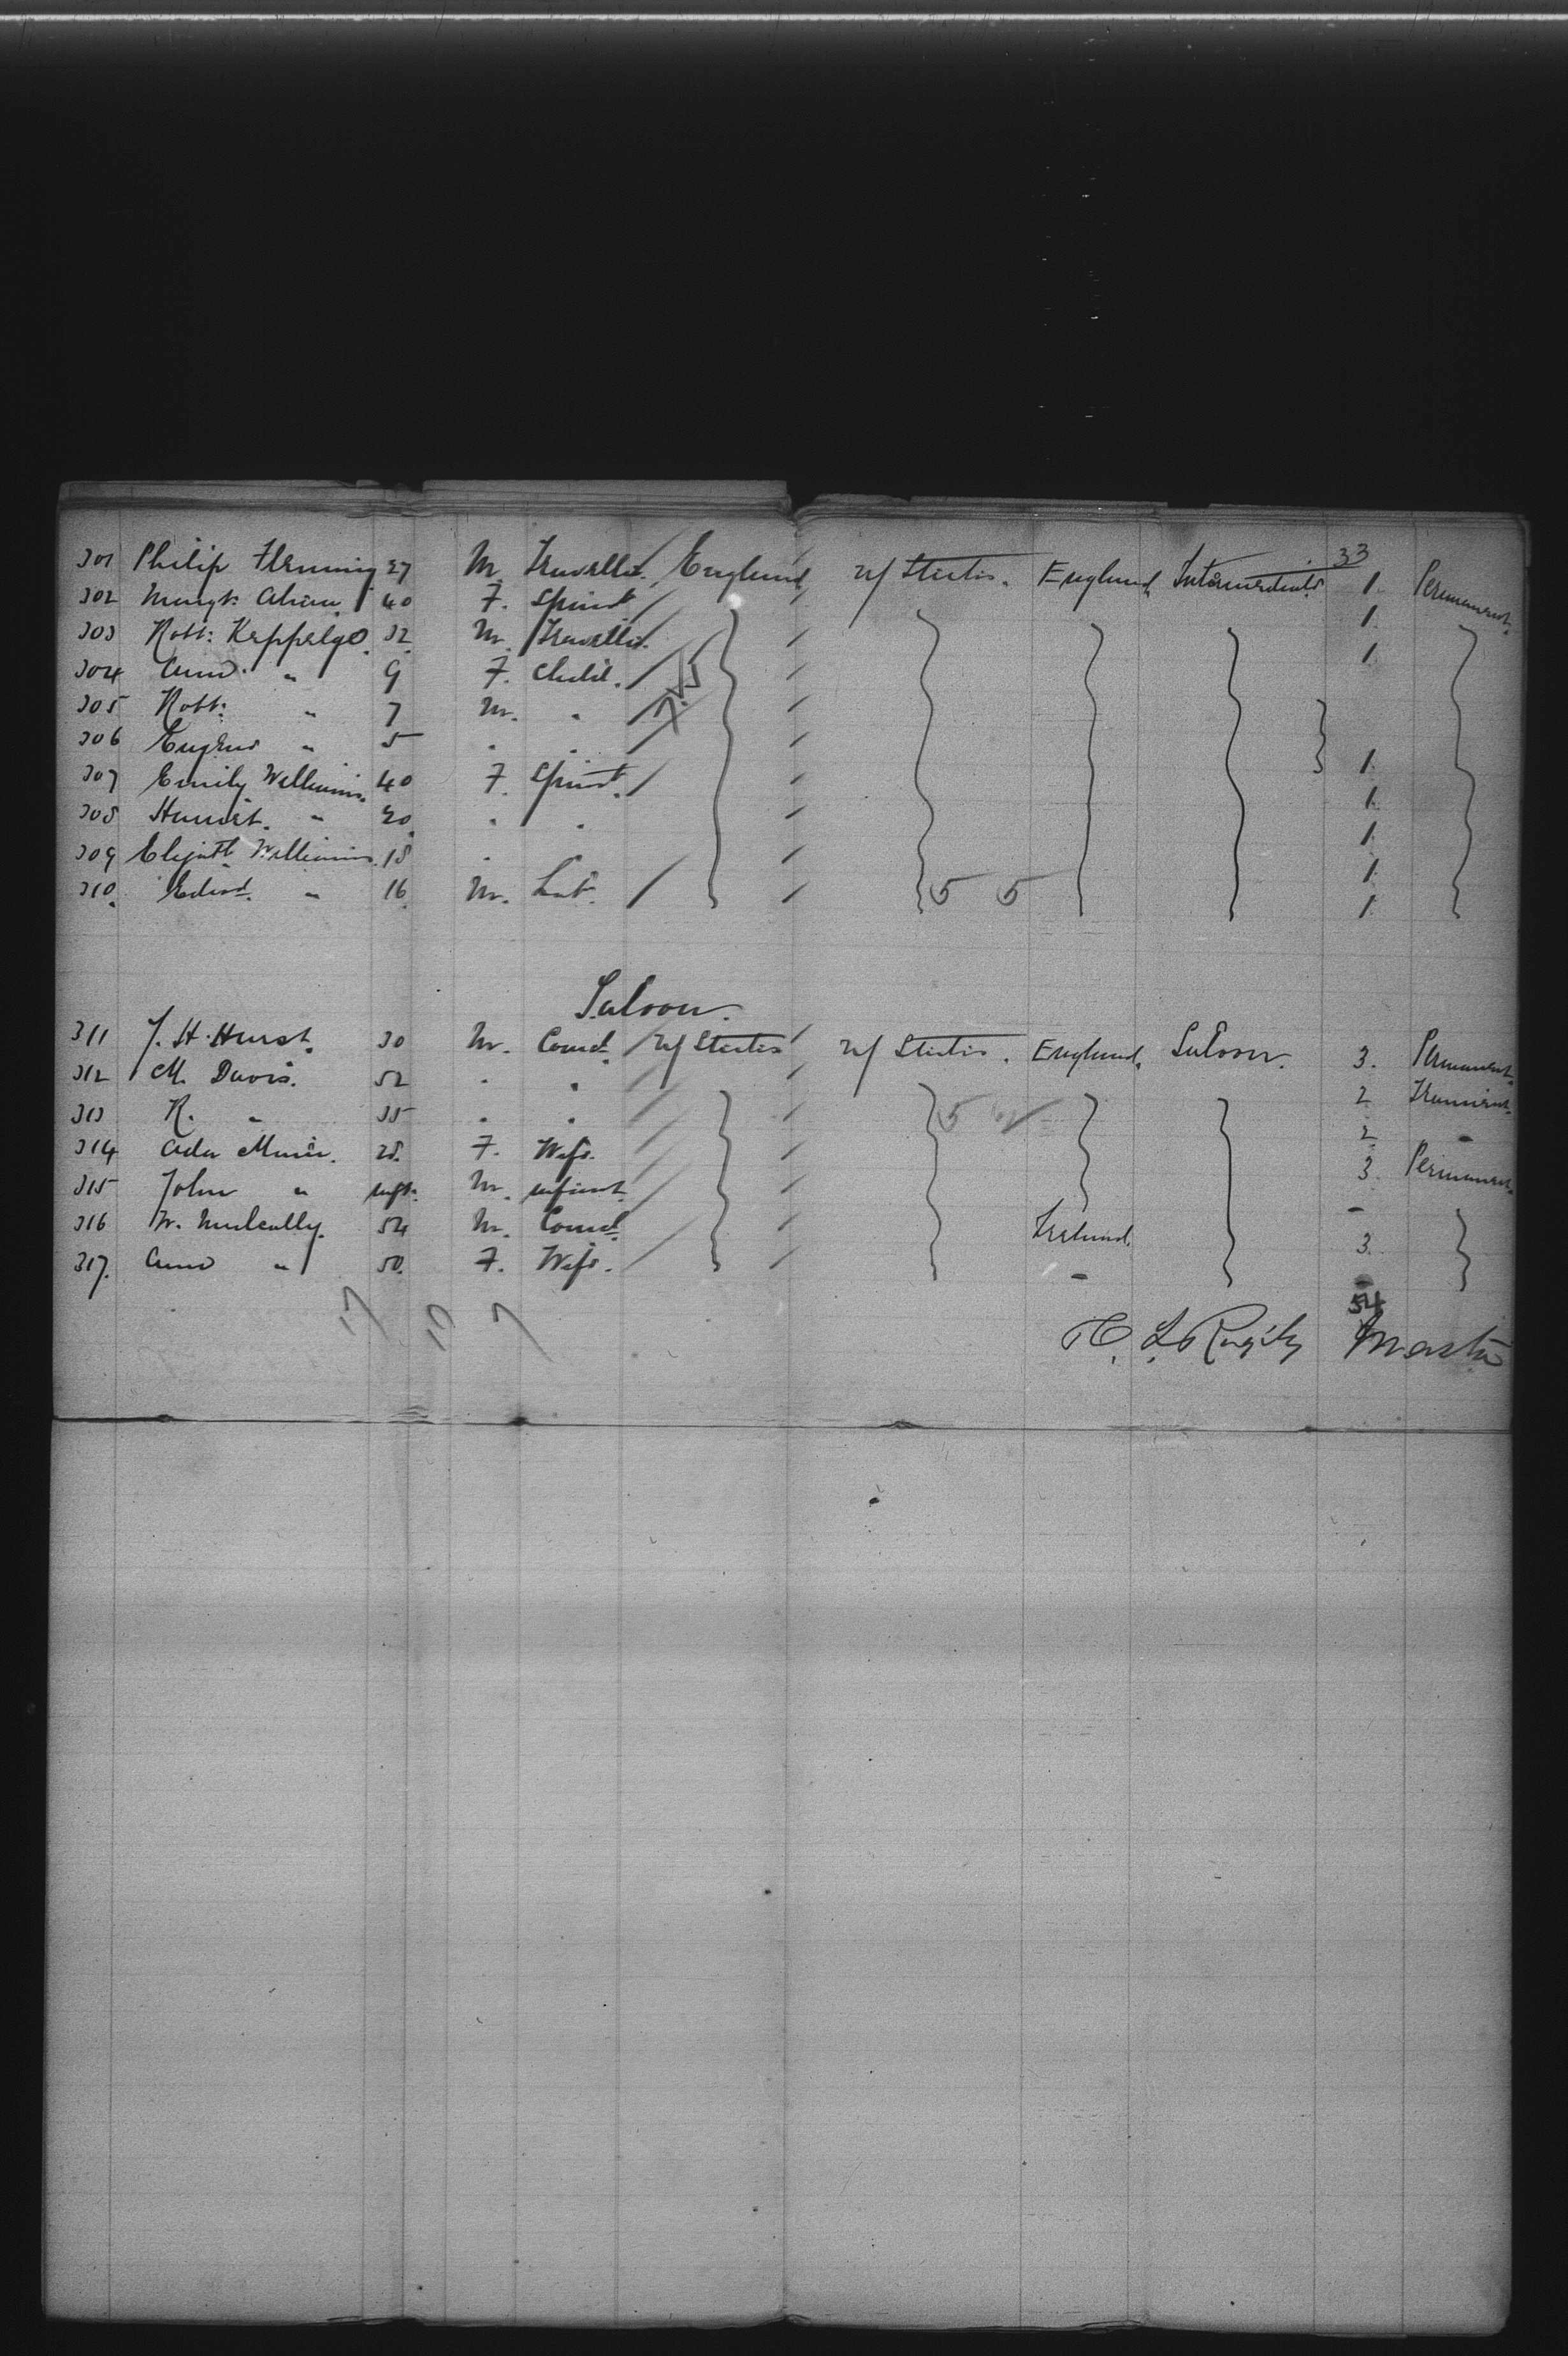 33
301 Philip Flemming 27 M. Traveller. England U/ States. England Intermediate 1. Permanent.
302 Margt. Ahern 40 F. Spinst 1.
303 Robt: Keppelgo. 32. M. Traveller. 1.
304 Anno. " 9 F. Child.
305 Robt: " 7 M. "
306 Eugene " 5 " "
307 Emily Williams. 40 F. Spinst. 1.
308 Harriet. " 20 . . 1.
309 Elizath Williams. 18 . 1.
310. Edwd. " 16 M. Lab. 5 5 1.
1.
Saloon.
311 J. H. Hurst. 30 M. Comd. U/ States U/ States. England. Saloon. 3. Permanent.
312 M. Davis. 52 . . 2 Transient.
313 R. " 35 . . 5 2 "
314 Ada Muir. 28. F. Wife. 3. Permanent.
315 John " inft. M. infant. -
316 W. Mulcally. 54 M. Comd. Ireland. 3.
317. Anno " 50. F. Wife. - -
17 10 7 54
H. L. Master